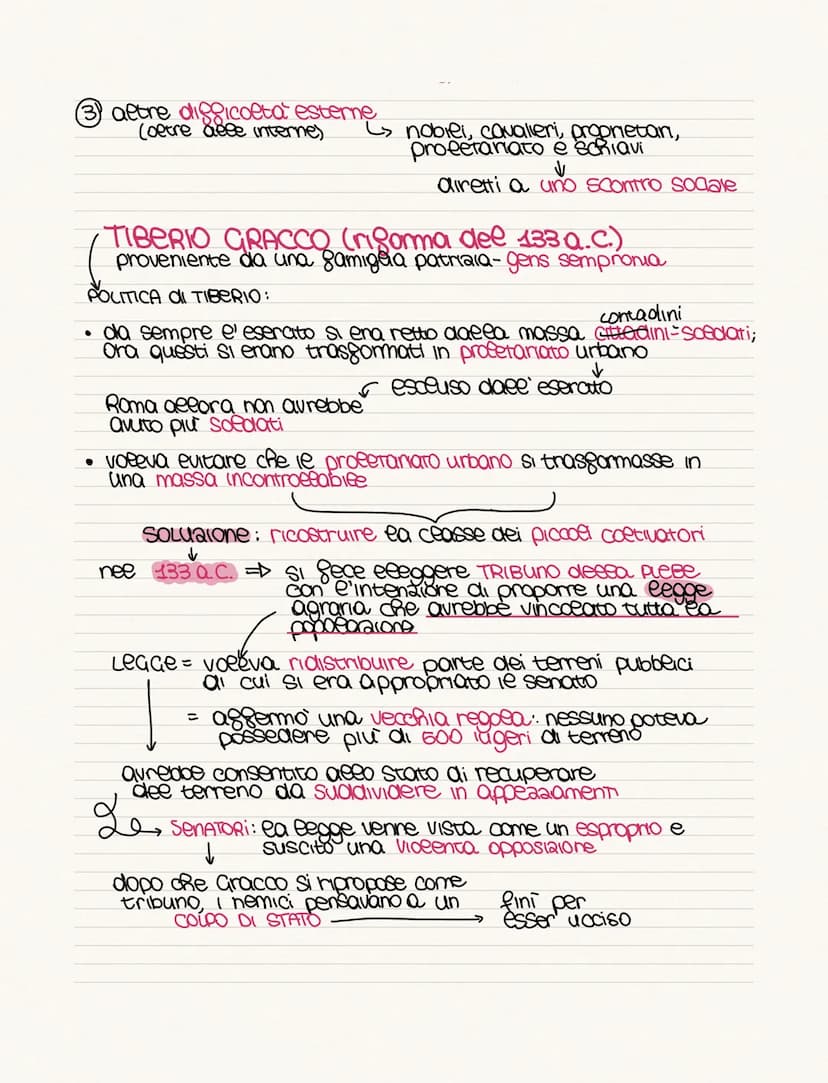 ③ altre difficoltà esterne
(oltre alle interne) ↳ nobili, cavalieri, proprietari,
proletariato e schiavi
↓
diretti a uno scontro sociale
TIBERIO GRACCO (riforma del 133 a.C.)
proveniente da una famiglia patrizia - gens sempronia
POLITICA di TIBERIO:
contadini
• da sempre l'esercito si era retto dalla massa cittadini-soldati;
ora questi si erano trasformati in proletariato urbano
↓
escluso dall'esercito
Roma allora non avrebbe
avuto più soldati
• voleva evitare che il proletariato urbano si trasformasse in
una massa incontrollabile
SOLUZIONE: ricostruire la classe dei piccoli coltivatori
↓
nel 133 a.C. ⇒ si fece eleggere TRIBUNO della PLEBE
con l'intenzione di proporre una legge
agraria che avrebbe vincolato tutta la
popolazione
LEGGE = voleva ridistribuire parte dei terreni pubblici
di cui si era appropriato il senato
= affermò una vecchia regola: nessuno poteva
possedere più di 600 iugeri di terreno
avrebbe consentito allo Stato di recuperare
del terreno da suddividere in appezzamenti
→ SENATORI: la legge venne vista come un esproprio e
↓ suscitò una violenta opposizione
dopo che Gracco si ripropose come
tribuno, i nemici pensavano a un
COLPO DI STATO → finì per
esser ucciso